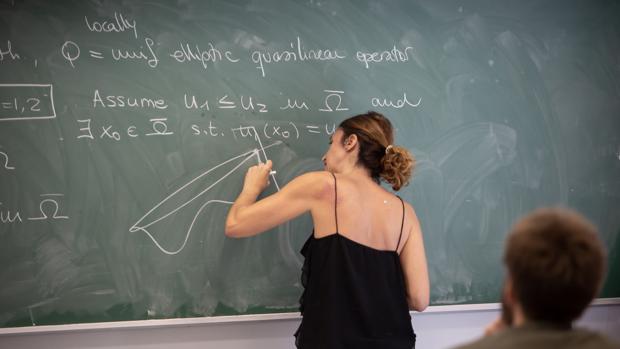 locally
Q = unif elliptic quasilinear operator
=1,2
Assume u₁ ≤ u₂ in Ω̅ and
∃ x₀ ∈ Ω̅ s.t. (x₀) = u
in Ω̅